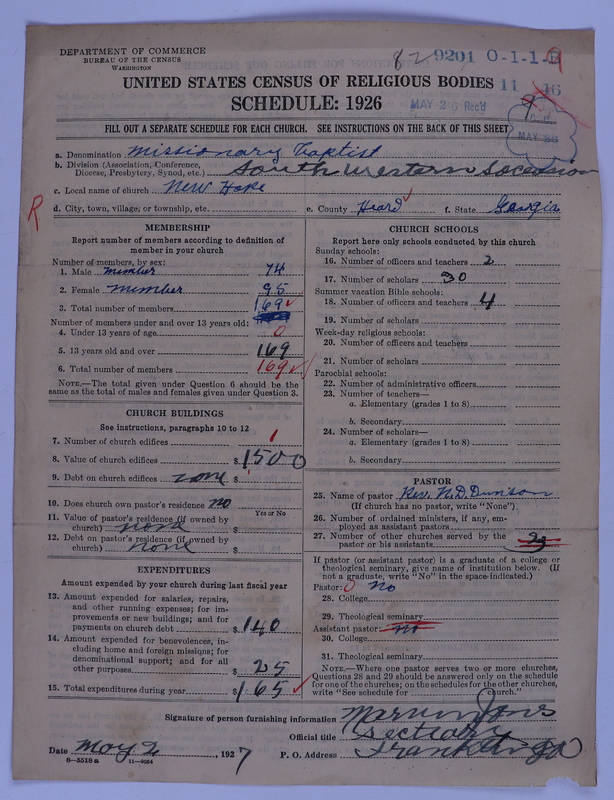 DEPARTMENT OF COMMERCE
BUREAU OF THE CENSUS
WASHINGTON
82 9201 0-1-1-
UNITED STATES CENSUS OF RELIGIOUS BODIES 11 16
SCHEDULE: 1926
MAY 26 Rec'd
MAY 26
FILL OUT A SEPARATE SCHEDULE FOR EACH CHURCH. SEE INSTRUCTIONS ON THE BACK OF THIS SHEET
a. Denomination Missionary Baptist
b. Division (Association, Conference, Diocese, Presbytery, Synod, etc.) South Western
c. Local name of church New Hope
d. City, town, village, or township, etc. e. County Heard f. State Georgia
R
MEMBERSHIP
Report number of members according to definition of member in your church
Number of members, by sex:
1. Male member 74
2. Female member 95
3. Total number of members 169
Number of members under and over 13 years old:
4. Under 13 years of age 0
5. 13 years old and over 169
6. Total number of members 169
NOTE.—The total given under Question 6 should be the same as the total of males and females given under Question 3.
CHURCH BUILDINGS
See instructions, paragraphs 10 to 12
7. Number of church edifices 1
8. Value of church edifices $1500
9. Debt on church edifices none $
10. Does church own pastor's residence no
Yes or No
11. Value of pastor's residence (if owned by church) none $
12. Debt on pastor's residence (if owned by church) none $
EXPENDITURES
Amount expended by your church during last fiscal year
13. Amount expended for salaries, repairs, and other running expenses; for improvements or new buildings; and for payments on church debt $140
14. Amount expended for benevolences, including home and foreign missions; for denominational support; and for all other purposes $25
15. Total expenditures during year $165
CHURCH SCHOOLS
Report here only schools conducted by this church
Sunday schools:
16. Number of officers and teachers 2
17. Number of scholars 30
Summer vacation Bible schools:
18. Number of officers and teachers 4
19. Number of scholars
Week-day religious schools:
20. Number of officers and teachers
21. Number of scholars
Parochial schools:
22. Number of administrative officers
23. Number of teachers—
a. Elementary (grades 1 to 8)
b. Secondary
24. Number of scholars—
a. Elementary (grades 1 to 8)
b. Secondary
PASTOR
25. Name of pastor Rev.
(If church has no pastor, write "None")
26. Number of ordained ministers, if any, employed as assistant pastors
27. Number of other churches served by the pastor or his assistants
If pastor (or assistant pastor) is a graduate of a college or theological seminary, give name of institution below. (If not a graduate, write "No" in the space indicated.)
Pastor: 0 No
28. College
29. Theological seminary
Assistant pastor: no
30. College
31. Theological seminary
NOTE.—Where one pastor serves two or more churches, Questions 28 and 29 should be answered only on the schedule for one of the churches; on the schedules for the other churches, write "See schedule for church."
Signature of person furnishing information Marvin Jones
Official title
Date May 2, 1927 P. O. Address Franklin Ga
8—5518a 11—9264